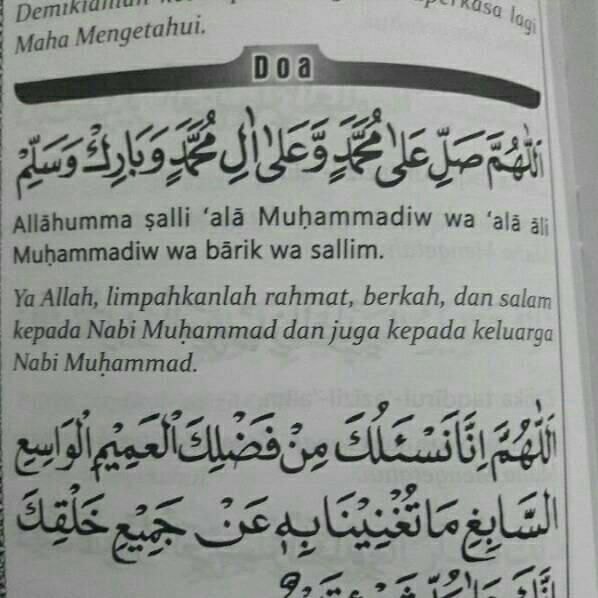 Demikianlah
lagi
Maha Mengetahui.
Doa
اَللّٰهُمَّ صَلِّ عَلٰى مُحَمَّدٍ وَّعَلٰى اٰلِ مُحَمَّدٍ وَبَارِكْ وَسَلِّمْ
Allāhumma ṣalli ‘alā Muḥammadiw wa ‘alā āli
Muḥammadiw wa bārik wa sallim.
Ya Allah, limpahkanlah rahmat, berkah, dan salam
kepada Nabi Muḥammad dan juga kepada keluarga
Nabi Muḥammad.
اَللّٰهُمَّ اِنَّا نَسْئَلُكَ مِنْ فَضْلِكَ الْعَمِيْمِ الْوَاسِعِ
السَّابِغِ مَا تُغْنِيْنَا بِهٖ عَنْ جَمِيْعِ خَلْقِكَ